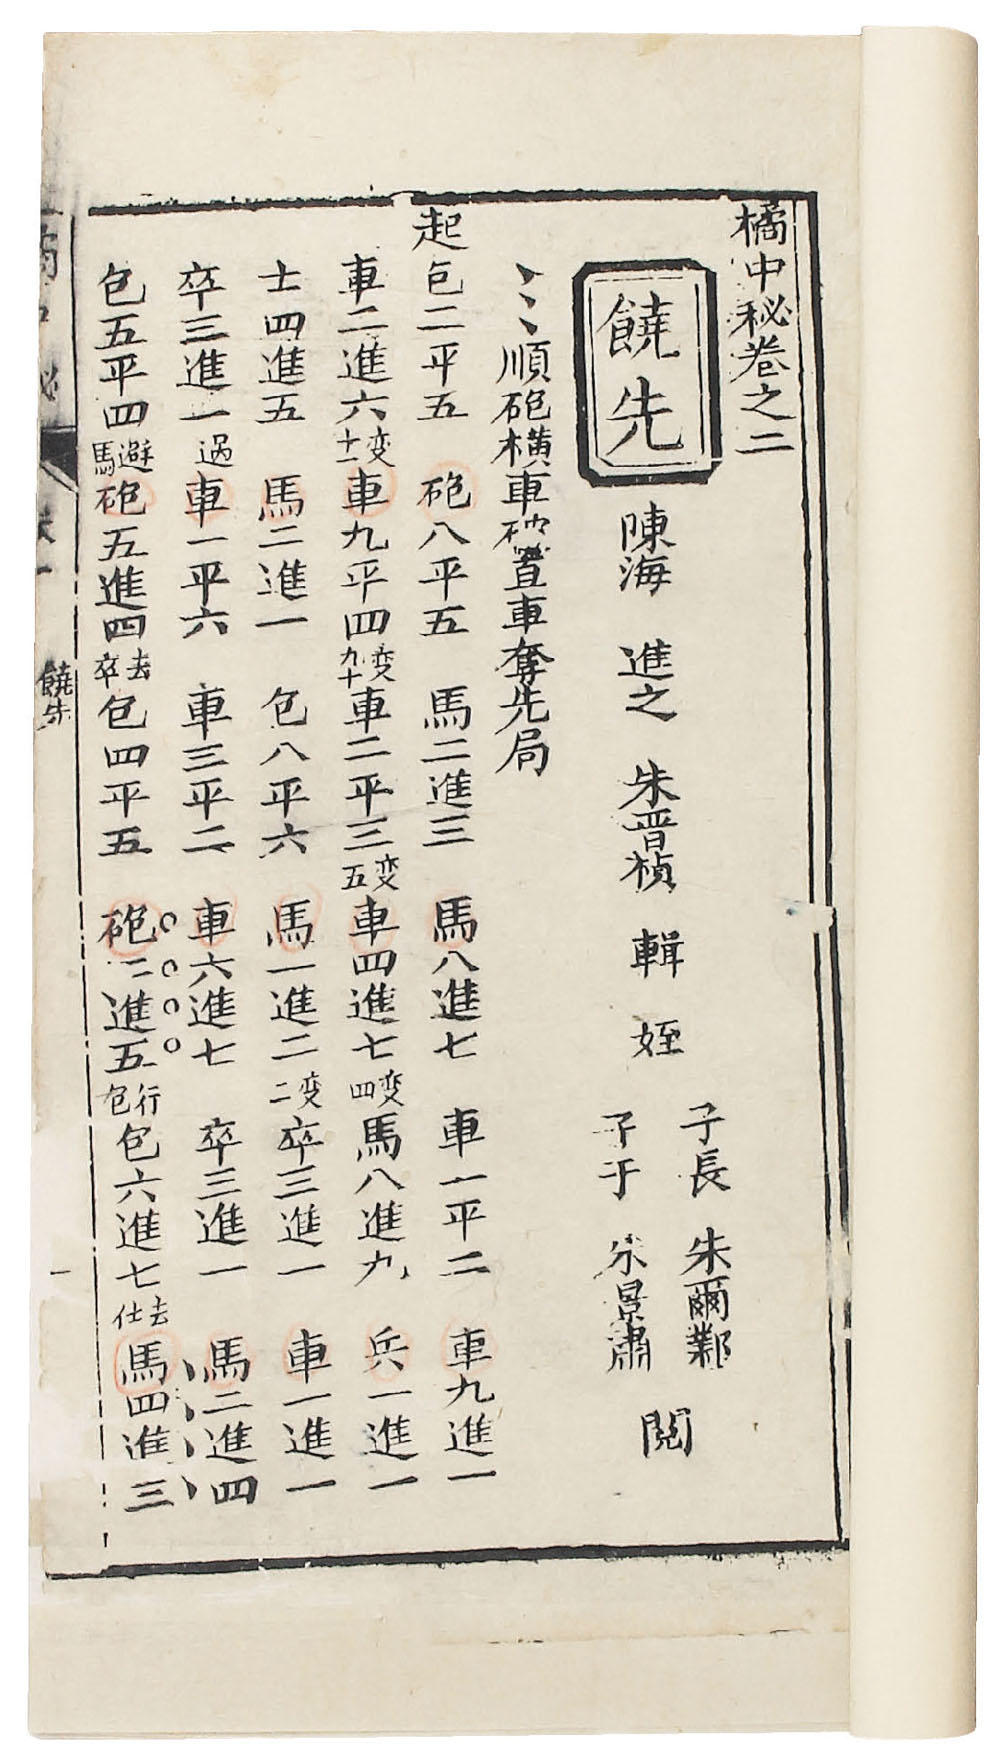 橘中秘卷之二
饒先
陳海 進之 朱晋楨 輯 姪
子長 朱爾鄴
子于 朱景肅
閱
順砲橫車破直車奪先局
起包二平五 砲八平五 馬二進三 馬八進七 車一平二 車九進一
車二進六变十一 車九平四变九十 車二平三变五 車四進七变四 馬八進九 兵一進一
士四進五 馬二進一 包八平六 馬一進二变二 卒三進一 車一進一
卒三進一過 車一平六 車三平二 車六進七 卒三進一 馬二進四
包五平四避馬 砲五進四去卒 包四平五 砲二進五行包 包六進七去仕 馬四進三
饒先
一